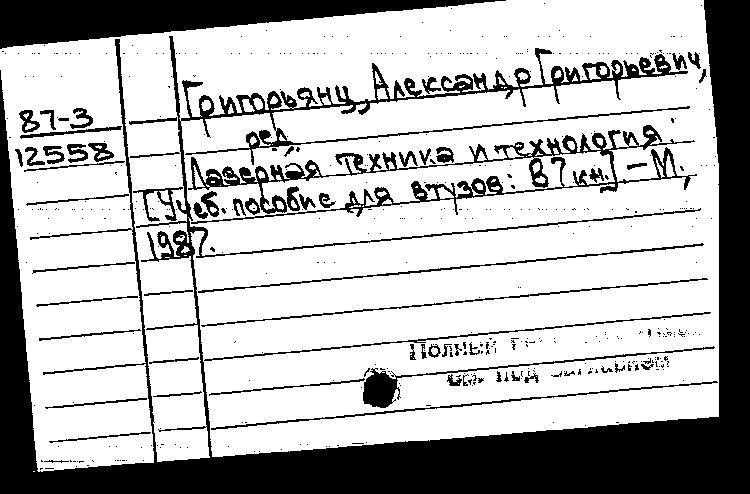 Григорьянц, Александр Григорьевич,
87-3
ред.
12558
Лазерная техника и технология:
[Учеб. пособие для втузов: В 7 кн.]. – М.,
1987.
Полный
см. под заглавием